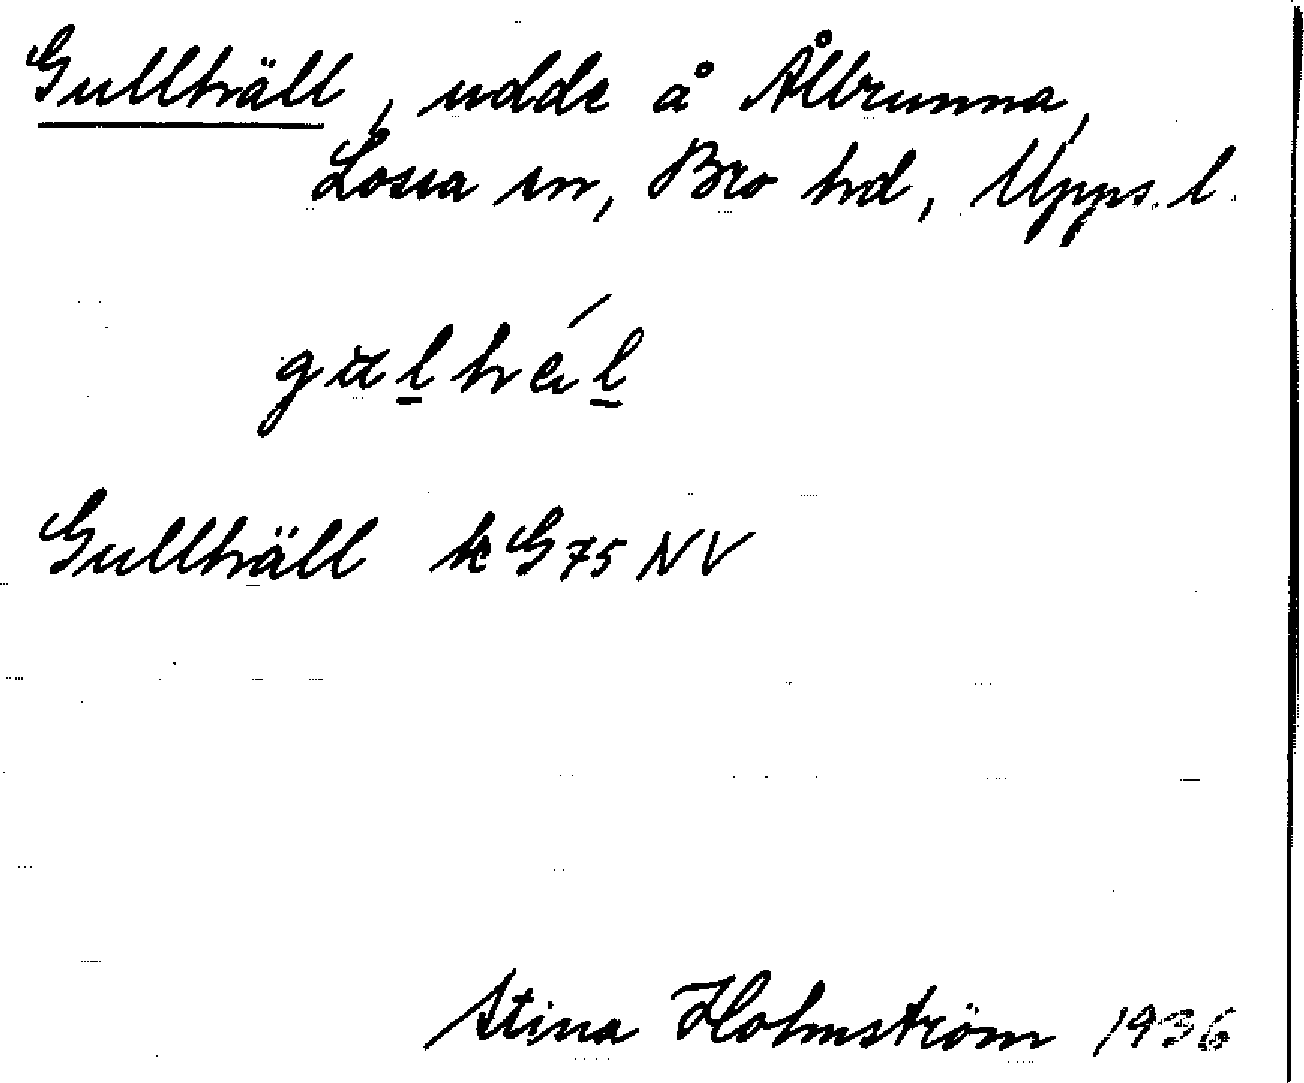 Gullhäll, udde å Ålbrunna,
Lossa sn, Bro hd, Upps. l.
Gullhäll k G75 NV
Stina Holmström 1936